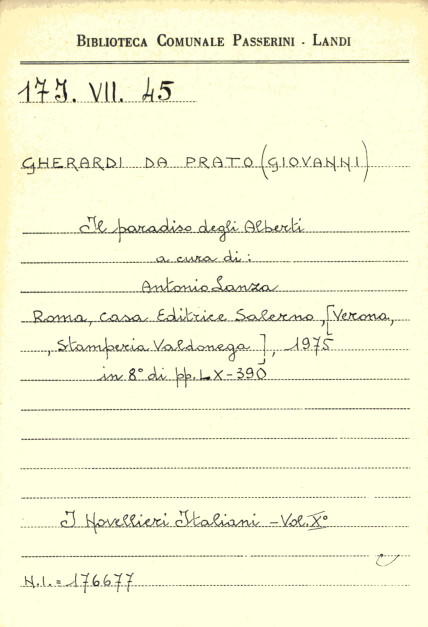 BIBLIOTECA COMUNALE PASSERINI - LANDI
17J. VII. 45
GHERARDI DA PRATO (GIOVANNI)
Il paradiso degli Alberti
a cura di:
Antonio Lanza
Roma, Casa Editrice Salerno, [Verona,
, Stamperia Valdonega], 1975
in 8° di pp. LX-390
I Novellieri Italiani - Vol. X°
N.I. = 176677